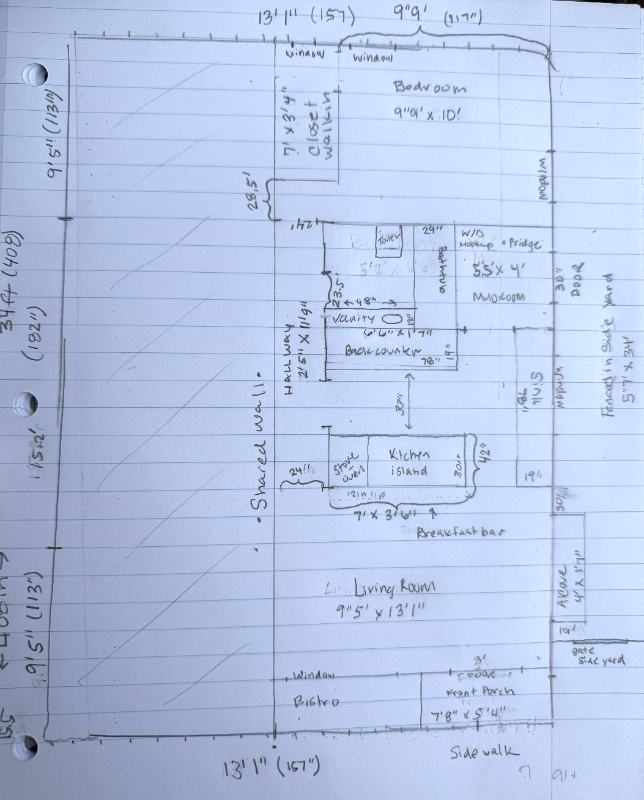 13'1" (157)
9"9' (117")
window
window
Bedroom
9"9' x 10'
7' x 3'4"
Closet
walkin
9'5" (113")
28.5'
24"
window
toilet
29"
bathtub
W/D
Hookup + Fridge
5'5' x 4'
MUDROOM
30"
DOOR
Tenants in Side yard
5"7' x 34'
34 Ft (408)
(182")
23.5'
48"
vanity
6'6" x 1'7"
Back counter
78"
19"
HALLWAY
2'5" x 11'9"
Shared wall
30"
78"
window
19"
24"
Stove
oven
Kitchen
island
30"
42"
12in lip
7' x 3'6"
Breakfast bar
30"
Alcove
4' x 1'7"
Living Room
9"5' x 13'1"
9'5" (113")
gate
side yard
window
3'
Bistro
Front Porch
7'8" x 5'4"
Side walk
13'1" (157")